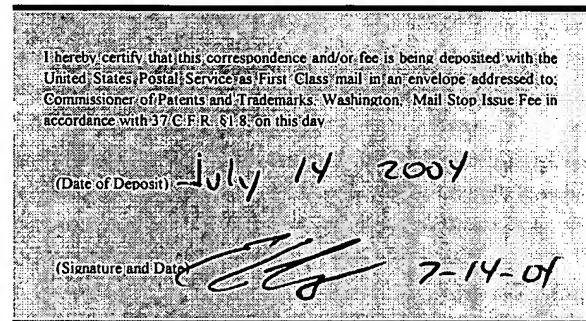 I hereby certify that this correspondence and/or fee is being deposited with the
United States Postal Service as First Class mail in an envelope addressed to:
Commissioner of Patents and Trademarks, Washington, Mail Stop Issue Fee in
accordance with 37 C.F.R. §1.8, on this day
(Date of Deposit) July 14 2004
(Signature and Date) 7-14-04